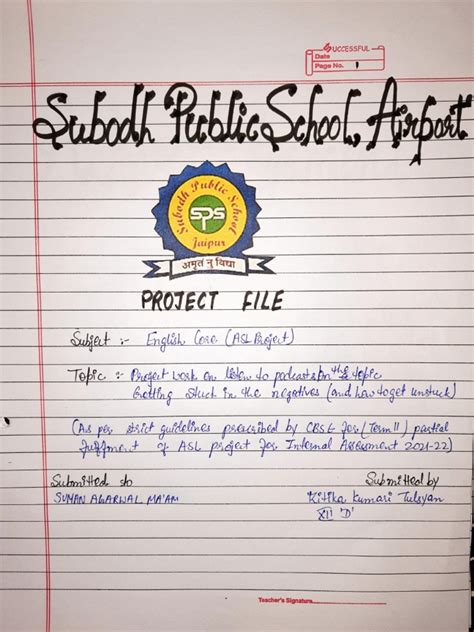 SUCCESSFUL
Date
Page No. 1
Subodh Public School, Airport
Subodh Public School
SPS
Jaipur
अमृतं नु विद्या
PROJECT FILE
Subject :- English Core (ASL Project)
Topic :- Project work on listen to podcasts on the topic
Getting stuck in the negatives (and how to get unstuck)
(As per strict guidelines prescribed by CBSE for (Term II) partial
fulfilment of ASL project for Internal Assessment 2021-22)
Submitted to
SUMAN AGARWAL MA'AM
Submitted by
Kitika Kumari Tulsyan
XII 'D'
Teacher's Signature